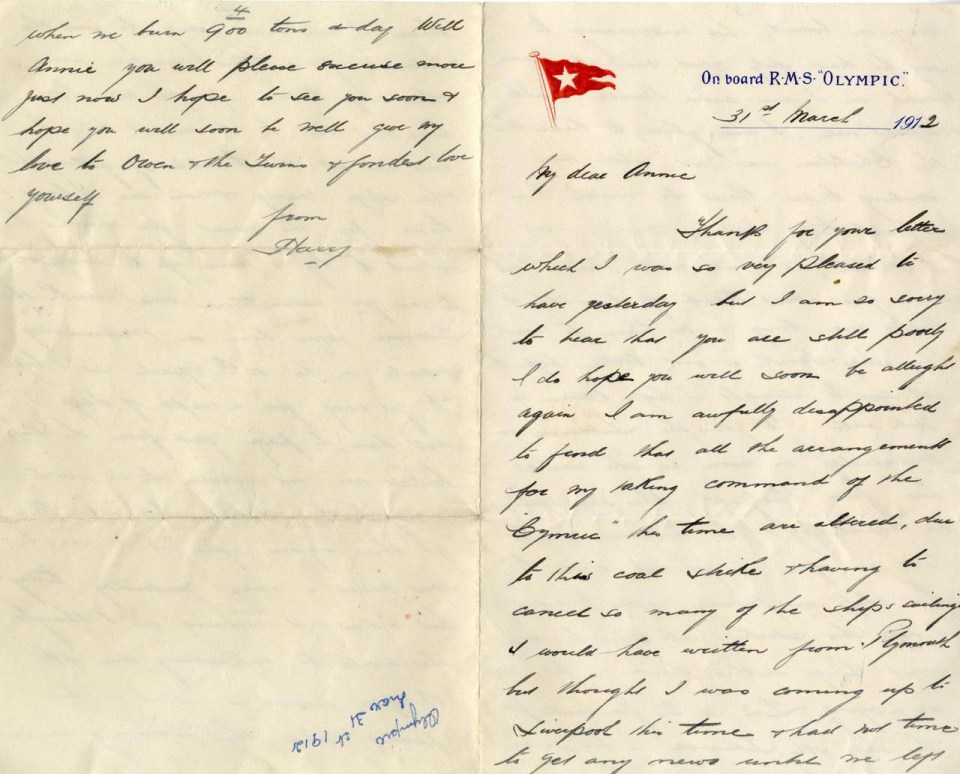 On board R.M.S. "OLYMPIC."
31st March 1912
My dear Annie
Thanks for your letter
which I was so very pleased to
have yesterday but I am so sorry
to hear that you are still poorly
I do hope you will soon be allright
again I am awfully disappointed
to find that all the arrangements
for my taking command of the
"Cymric" this time are altered, due
to this coal strike & having to
cancel so many of the ships sailings
I would have written from Plymouth
but thought I was coming up to
Liverpool this time & had not time
to get any news until we left
4
when we burn 900 tons a day Well
Annie you will please excuse more
just now I hope to see you soon &
hope you will soon be well give my
love to Owen & the Twins & fondest love
yourself
from
Harry
Olympic
Mar 31
st 1912